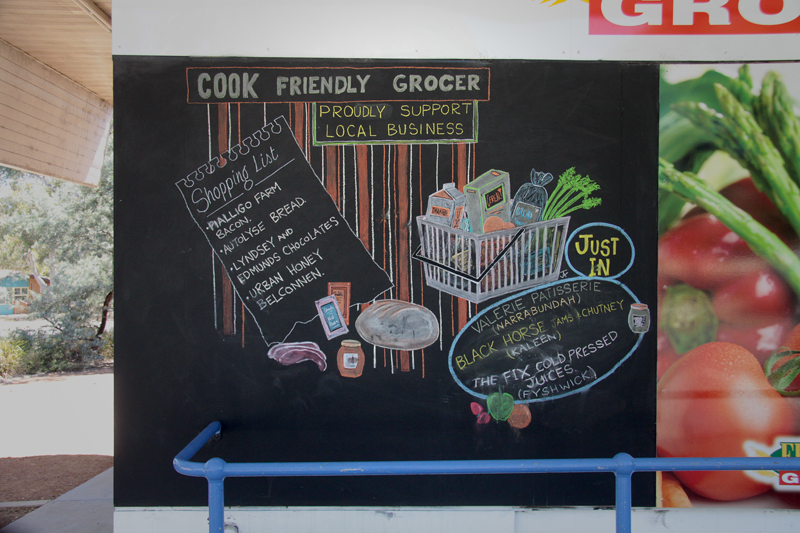 GRO
COOK FRIENDLY GROCER
PROUDLY SUPPORT
LOCAL BUSINESS
Shopping List
• PIALLIGO FARM
BACON.
• AUTOLYSE BREAD.
• LYNDSEY AND
EDMUNDS CHOCOLATES
• URBAN HONEY
BELCONNEN.
CEREAL
BREAD
JUST
IN
JF
VALERIE PATISSERIE
(NARRABUNDAH)
BLACK HORSE JAMS & CHUTNEY
(KALEEN)
THE FIX COLD PRESSED
JUICES.
(FYSHWICK)